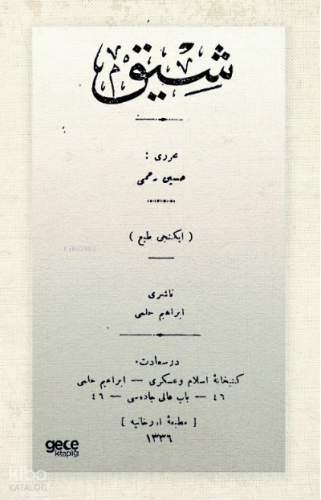 شيق
محررى :
حسين رحمى
( ايكنجى طبع )
ناشرى
ابراهيم حلمى
درسعادت
كتبخانهٔ اسلام و عسكرى — ابراهيم حلمى
٤٦ — باب عالى جاده سى — ٤٦
[ مطبعهٔ اورخانيه ]
١٣٣٦
gece
kitaplığı
kitap
KATALOG